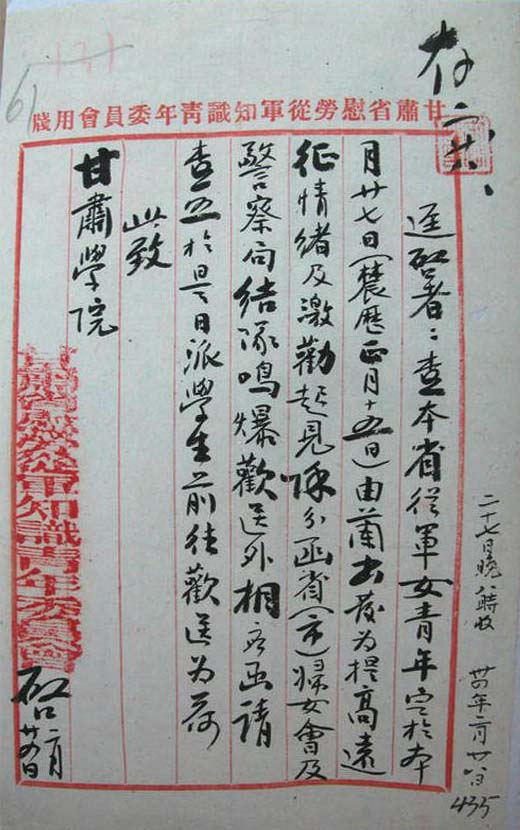 存 二、廿八、
甘肅省慰勞從軍知識靑年委員會用牋
逕啓者：查本省從軍女青年定於本
月廿七日（農歷正月十五日）由蘭出發為提高遠
征情緒及激勸起見除分函省（市）婦女會及
警察局結隊鳴爆歡送外相應函請
查照於是日派學生前往歡送為荷
此致
甘肅學院
甘肅省慰勞從軍知識青年委員會
啓 二月
二十七日晚八時收
卅四年二月廿八日
435
131
61